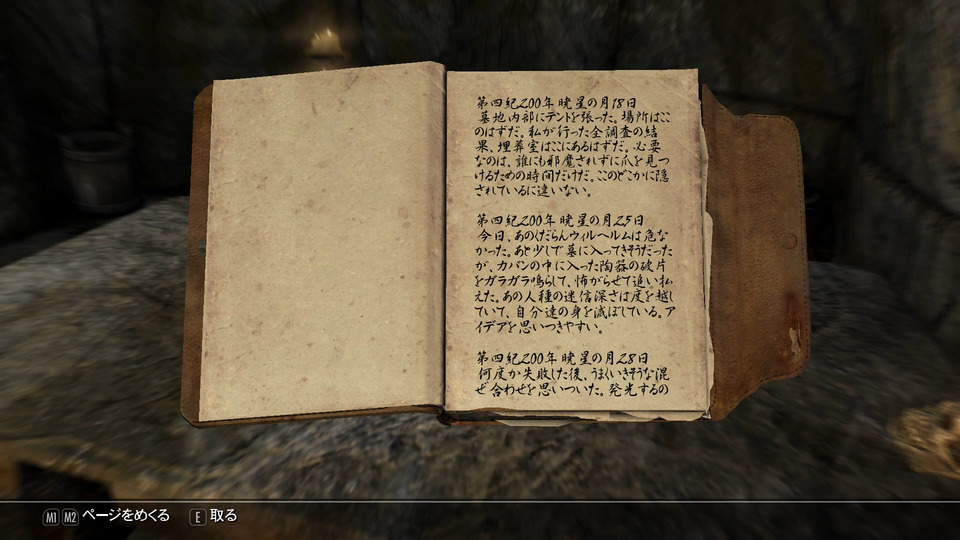 第四紀200年 暁星の月18日
墓地内部にテントを張った。場所はここ
のはずだ。私が行った全調査の結
果、埋葬室はここにあるはずだ。必要
なのは、誰にも邪魔されずに爪を見つ
けるための時間だけだ。このどこかに隠
されているに違いない。
第四紀200年 暁星の月25日
今日、あのくだらんウィルヘルムは危な
かった。あと少しで墓に入ってきそうだった
が、カバンの中に入った陶器の破片
をガラガラ鳴らして、怖がらせて追い払
えた。あの人種の迷信深さは度を越し
ていて、自分達の身を滅ぼしている。ア
イデアを思いつきやすい。
第四紀200年 暁星の月28日
何度か失敗した後、うまくいきそうな混
ぜ合わせを思いついた。発光するの
M1 M2 ページをめくる E 取る